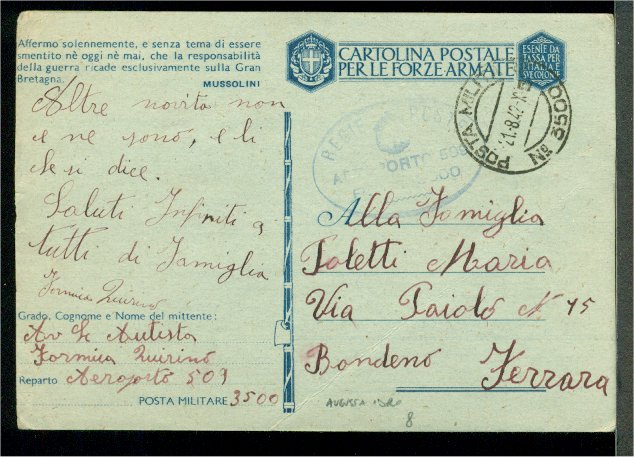 Affermo solennemente, e senza tema di essere
smentito nè oggi nè mai, che la responsabilità
della guerra ricade esclusivamente sulla Gran
Bretagna.
MUSSOLINI
Altre novita non
e ne sono, e li
che si dice.
Saluti Infiniti a
tutti di Famiglia
Formica Quirino
Grado, Cognome e Nome del mittente:
Av Sc Autista
Formica Quirino
Reparto Aeroporto 509
POSTA MILITARE 3500
CARTOLINA POSTALE
PER LE FORZE ARMATE
ESENTE DA
TASSA PER
L'ITALIA E
SUE COLONIE
POSTA MILITARE
Nº 3500
Alla Famiglia
Poletti Maria
Via Paiolo N 45
Bondeno Ferrara
AUGUSTA IDRO
8